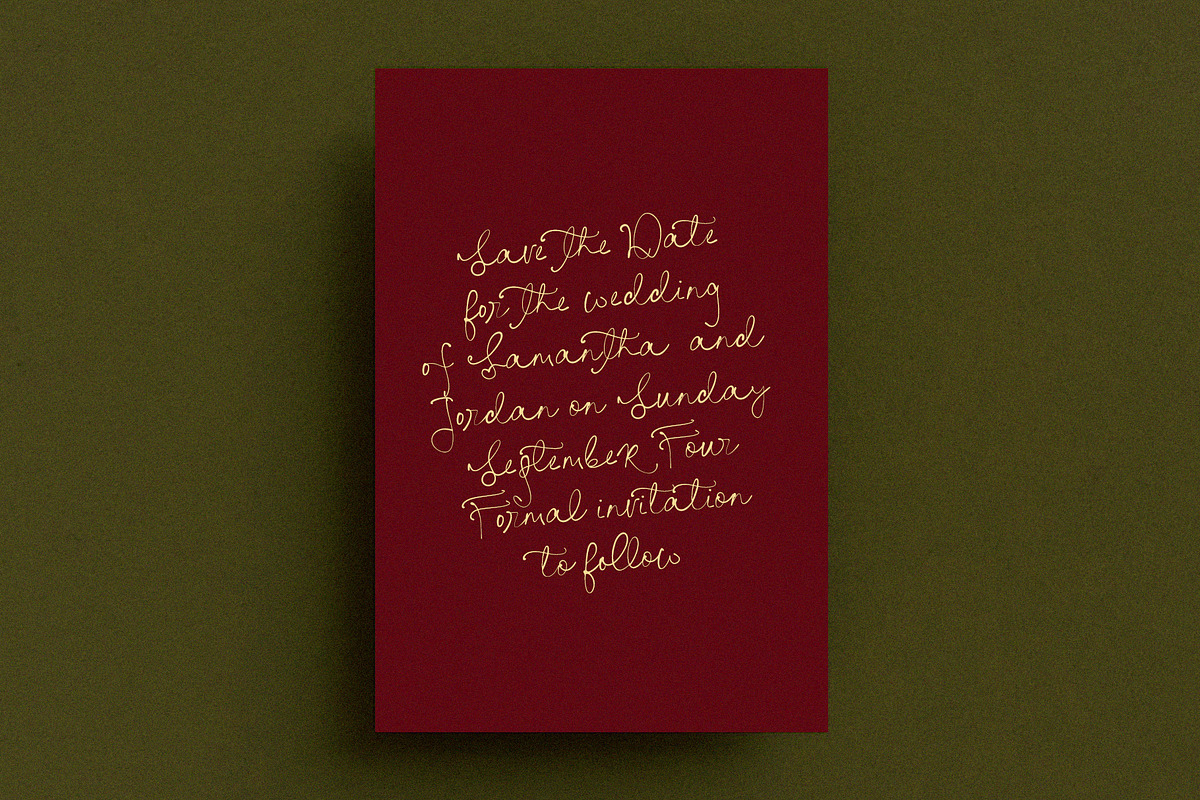 Save the Date
for the wedding
of Samantha and
Jordan on Sunday
September Four
Formal invitation
to follow